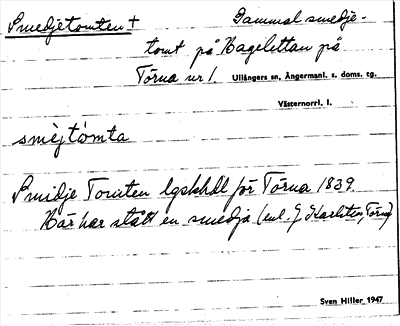 Smedjetomten + Gammal smedje-
tomt på Hagelettan på
Törna nr 1. Ullångers sn, Ångermanl. s. doms. tg.
Västernorrl. l.
smèjtòmta
Smidje Tomten lgskhdl för Törna 1839.
Här har stått en smedja (enl. J Karlsten, Törna)
Sven Hiller 1947